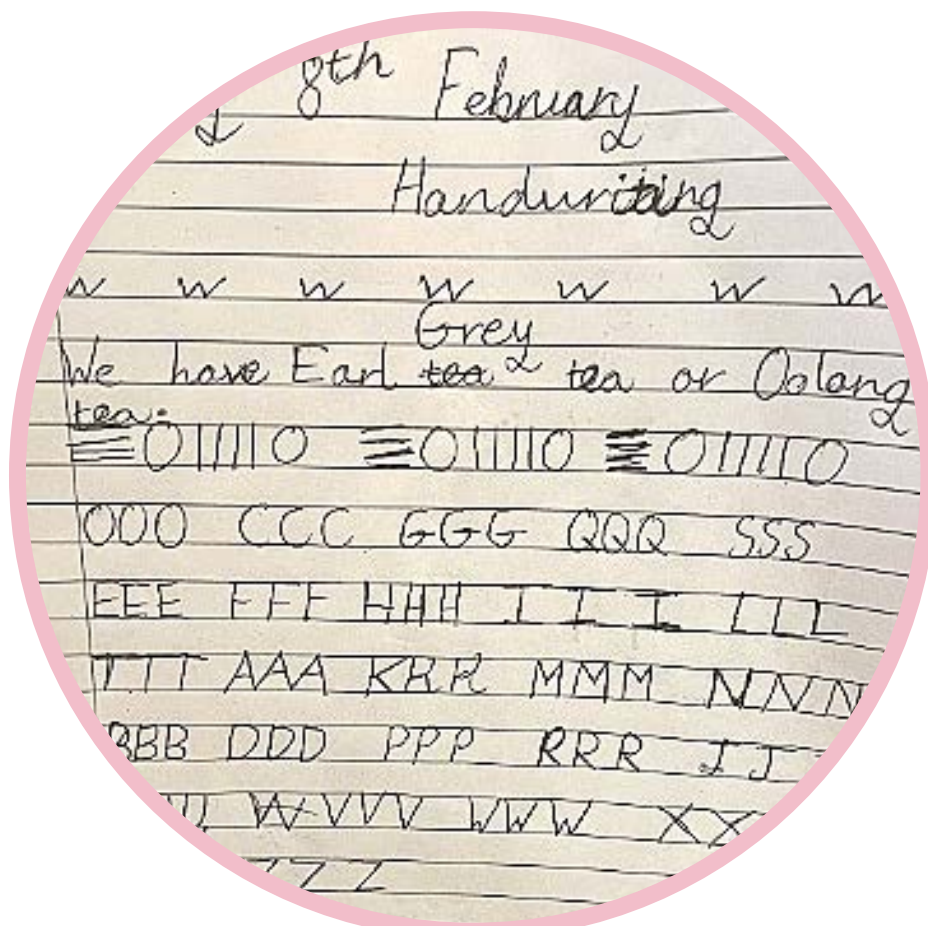 8th February
Handwriting
w w w w w w w
Grey
We have Earl tea tea or Oolang
tea.
OIIIIO OIIIIO OIIIIO
OOO CCC GGG QQQ SSS
EEE FFF HHH III LLL
TTT AAA KKK MMM NNN
BBB DDD PPP RRR JJ
VVV WWW XX
ZZZ